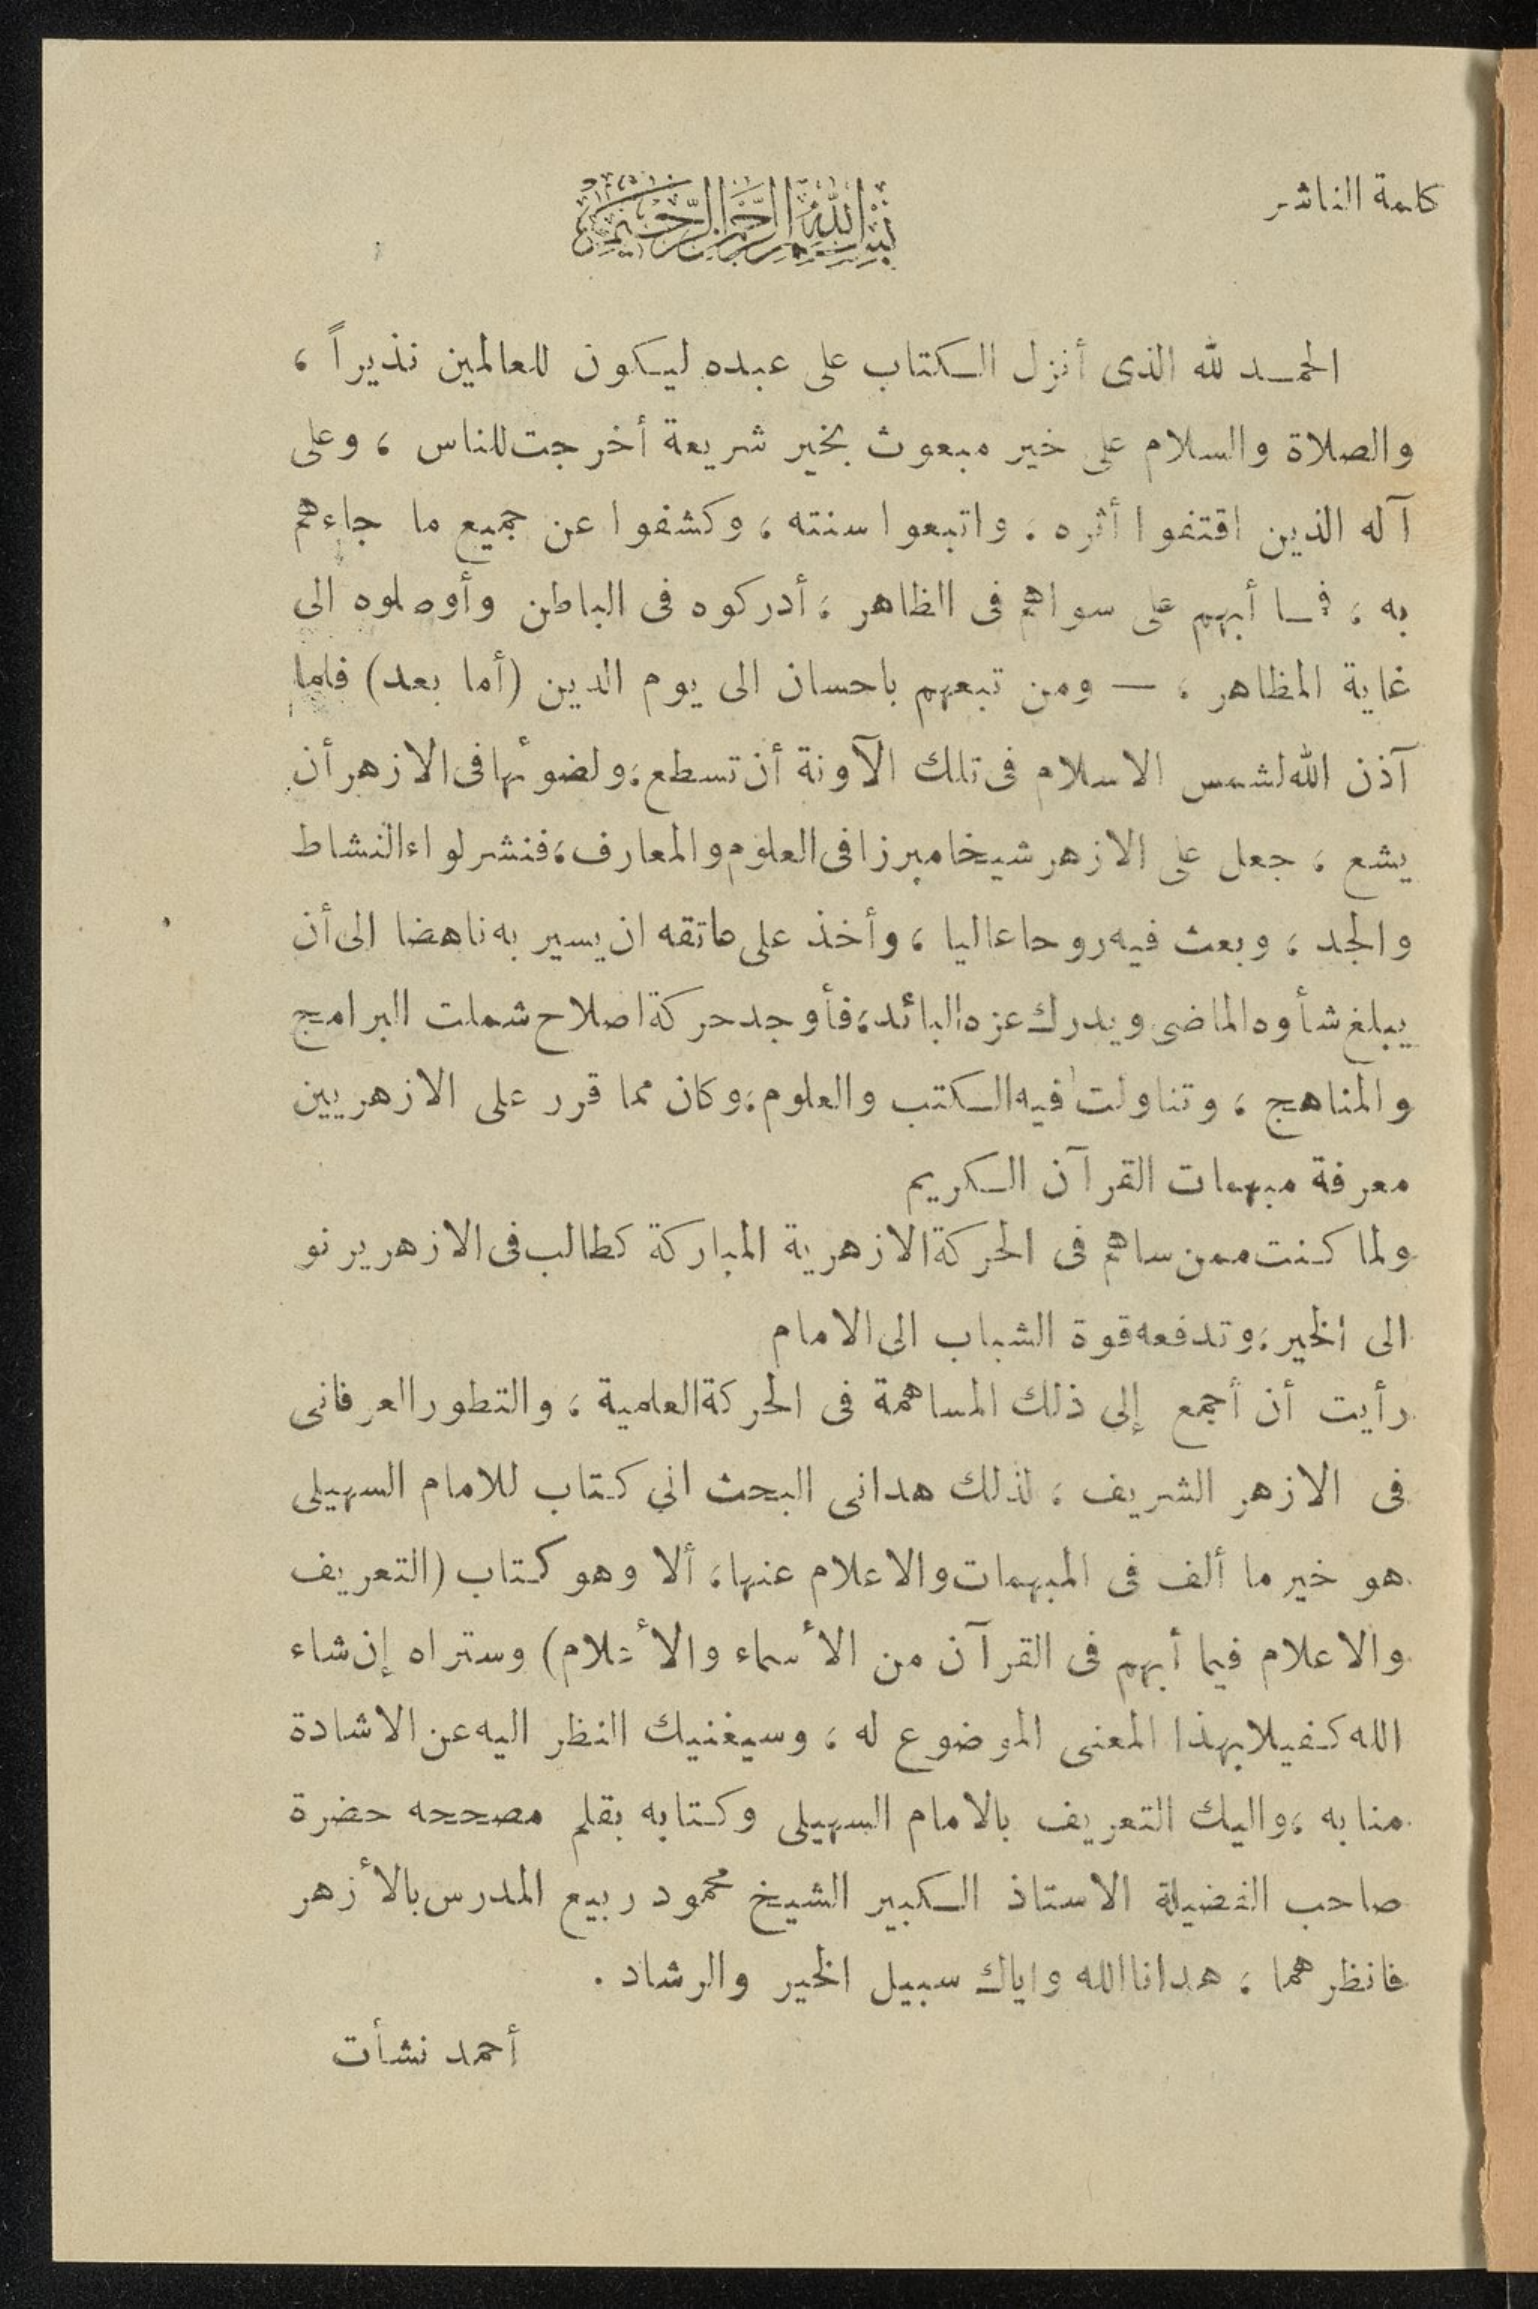 كلمة الناشر
بسم الله الرحمن الرحيم
الحمد لله الذى أنزل الكتاب على عبده ليكون للعالمين نذيراً ،
والصلاة والسلام على خير مبعوث بخير شريعة أخرجت للناس ، وعلى
آله الذين اقتفوا أثره ، واتبعوا سنته ، وكشفوا عن جميع ما جاءهم
به ، فما أبهم على سواهم فى الظاهر ، أدركوه فى الباطن وأوصلوه الى
غاية المظاهر ، — ومن تبعهم باحسان الى يوم الدين (أما بعد) فلما
آذن الله لشمس الاسلام فى تلك الآونة أن تسطع ، ولضوئها فى الازهر أن
يشع ، جعل على الازهر شيخا مبرزا فى العلوم والمعارف ، فنشر لواء النشاط
والجد ، وبعث فيه روحا عاليا ، وأخذ على عاتقه ان يسير به ناهضا الى أن
يبلغ شأوه الماضى ويدرك عزه البائد ، فأوجد حركة اصلاح شملت البرامج
والمناهج ، وتناولت فيه الكتب والعلوم ، وكان مما قرر على الازهريين
معرفة مبهمات القرآن الكريم
ولما كنت ممن ساهم فى الحركة الازهرية المباركة كطالب فى الازهر يرنو
الى الخير ، وتدفعه قوة الشباب الى الامام
رأيت أن أجمع إلى ذلك المساهمة فى الحركة العلمية ، والتطور العرفانى
فى الازهر الشريف ، لذلك هدانى البحث الى كتاب للامام السهيلى
هو خير ما ألف فى المبهمات والاعلام عنها ، ألا وهو كتاب (التعريف
والاعلام فيما أبهم فى القرآن من الأسماء والأعلام) وستراه إن شاء
الله كفيلا بهذا المعنى الموضوع له ، وسيغنيك النظر اليه عن الاشادة
منا به ، واليك التعريف بالامام السهيلى وكتابه بقلم مصححه حضرة
صاحب الفضيلة الاستاذ الكبير الشيخ محمود ربيع المدرس بالأزهر
فانظرهما ، هدانا الله واياك سبيل الخير والرشاد .
أحمد نشأت